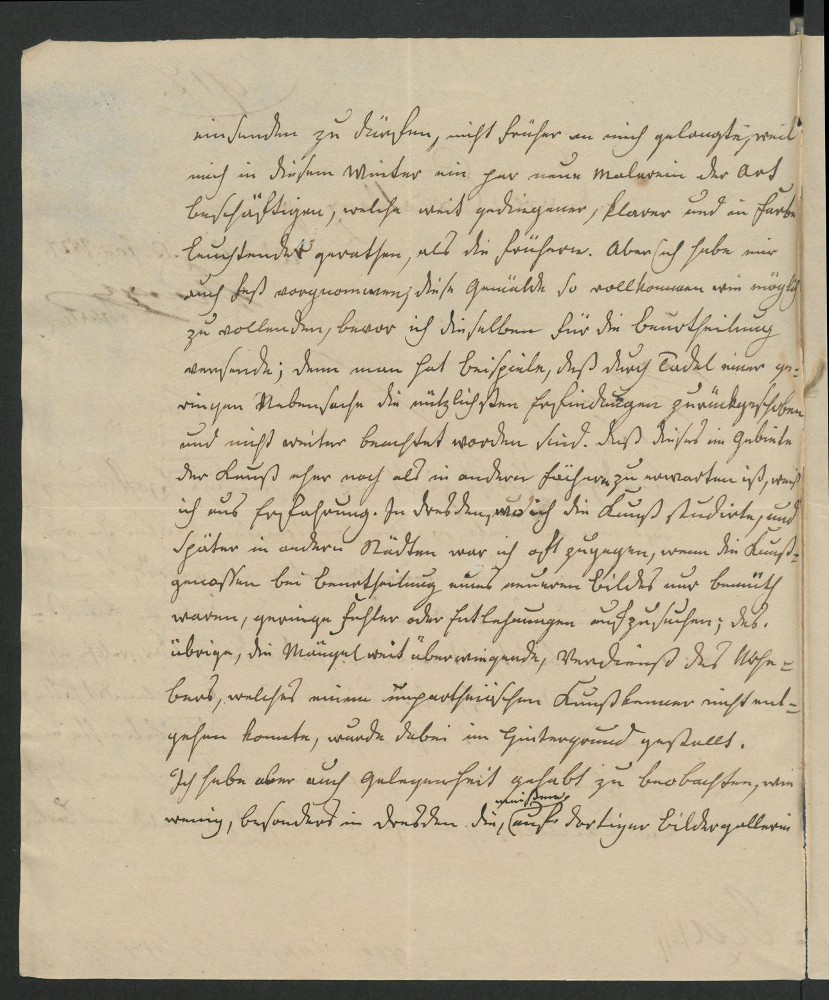 einsenden zu dürfen, nicht früher an mich gelangte, weil
mich in diesem Winter ein par neue Malerein der Art
beschäftigen, welche weit gediegener, klarer und in Farbe
leuchtender gerathen, als die frühern. Aber ich habe mir
auch fest vorgnommen, diese Gemälde so vollkommen wie möglich
zu vollenden, bevor ich dieselben für die Beurtheilung
versende; denn man hat Beispiele, daß durch Tadel einer ge=
ringen Nebensache die nützlichsten Erfindungen zurückgeschoben
und nicht weiter beachtet worden sind. Daß dieses im Gebiete
der Kunst eher noch als in andern Fächern zu erwarten ist, weiß
ich aus Erfahrung. In Dresden, wo ich die Kunst studirte, und
später in andern Städten war ich oft zugegen, wenn die Kunst=
genossen bei Beurtheilung eines neueren Bildes nur bemüth
waren, geringe Fehler oder Entlehnungen aufzusuchen; das
übrige, die Mängel weit überwiegende, Verdienst des Urhe=
bers, welches einem unpartheiischen Kunstkenner nicht ent=
gehen konnte, wurde dabei im Hintergrund gestellt.
Ich habe aber auch Gelegenheit gehabt zu beobachten, wie
wenig, besonders in Dresden die, meisten auf dortiger Bildergallerie